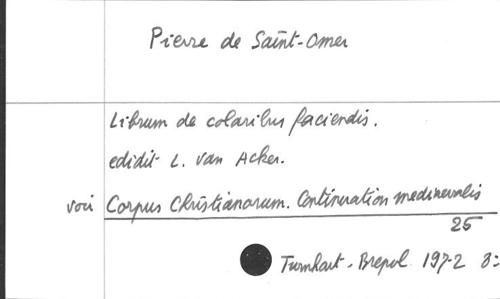 Pierre de Saint-Omer
Librum de coloribus faciendis.
edidit L. Van Acker.
voir Corpus Christianorum. Continuation mediaevalis
25
Turnhout - Brepol 1972 8: